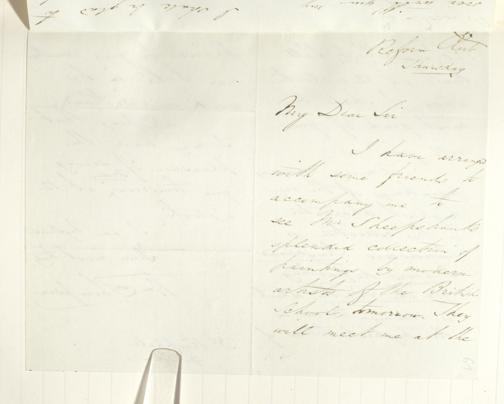 I shall be glad to
Reform Club
Thursday
My Dear Sir
I have arranged
with some friends to
accompany me to
see Mr Sheepshanks
splendid collection of
paintings by modern
artists of the British
School, tomorrow. They
will meet me at the